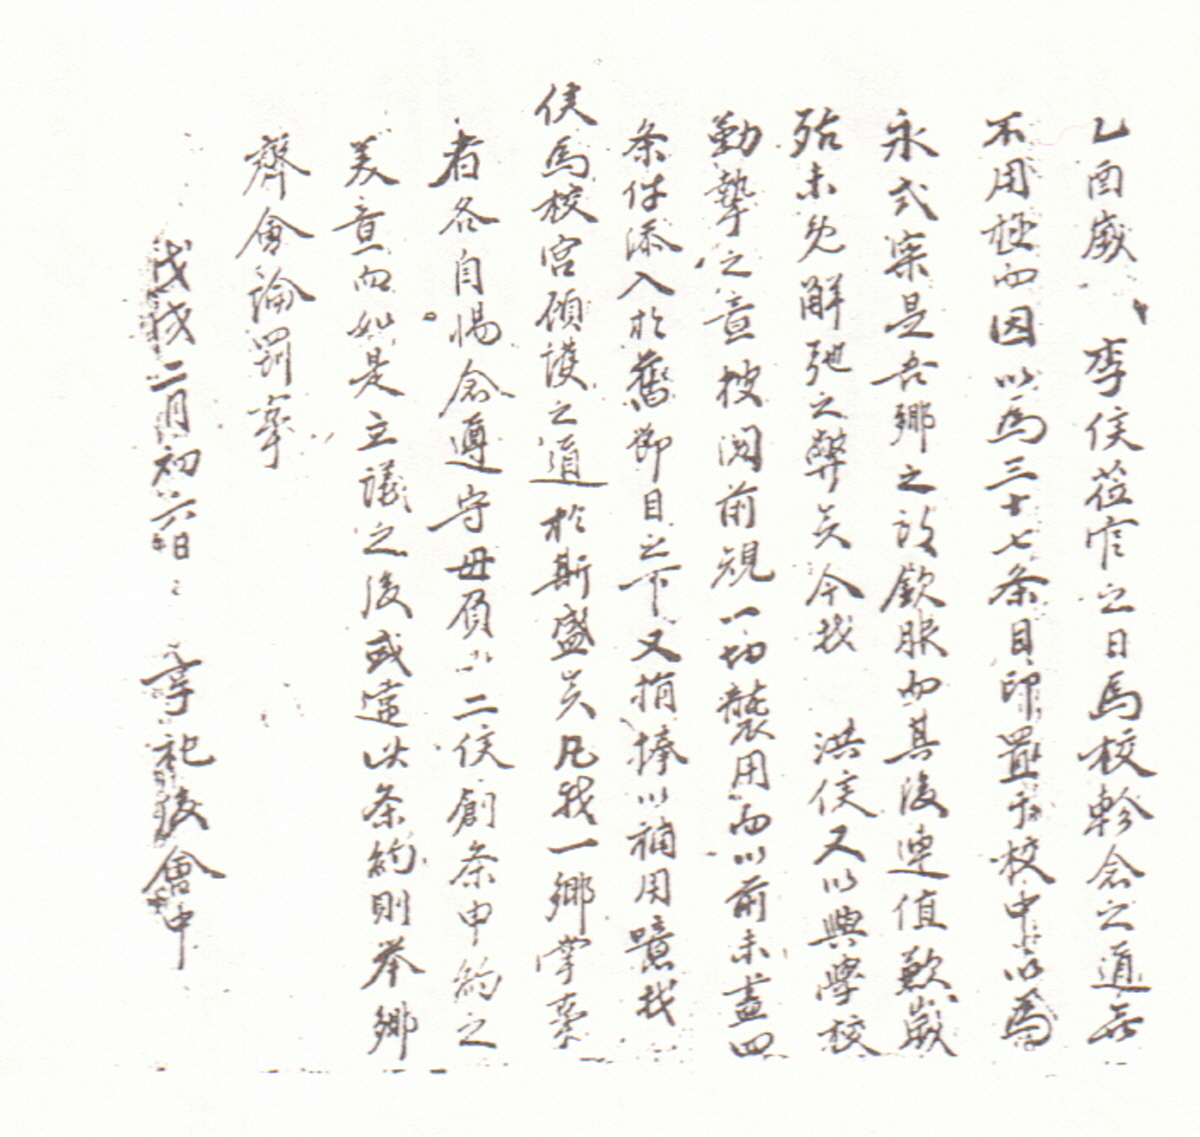 乙酉歲 李侯莅官之日爲校軫念之道無
不用極而因以爲三十七条目印置于校中以爲
永式寔是吾鄕之放欽服而其後連值歉歲
殆未免解弛之弊矣今我 洪侯又以興學校
勤摯之意披閱前規一切襲用而以前未盡四
条件添入於舊節目之下又捐捧以補用噫我
侯爲校宮顧護之道於斯盛矣凡我一鄕掌
者各自惕念遵守毋負 二侯創条申約之
美意而如是立議之後或違此条約則举鄕
齊會論罰事
戊戌二月初六日 享祀後會中